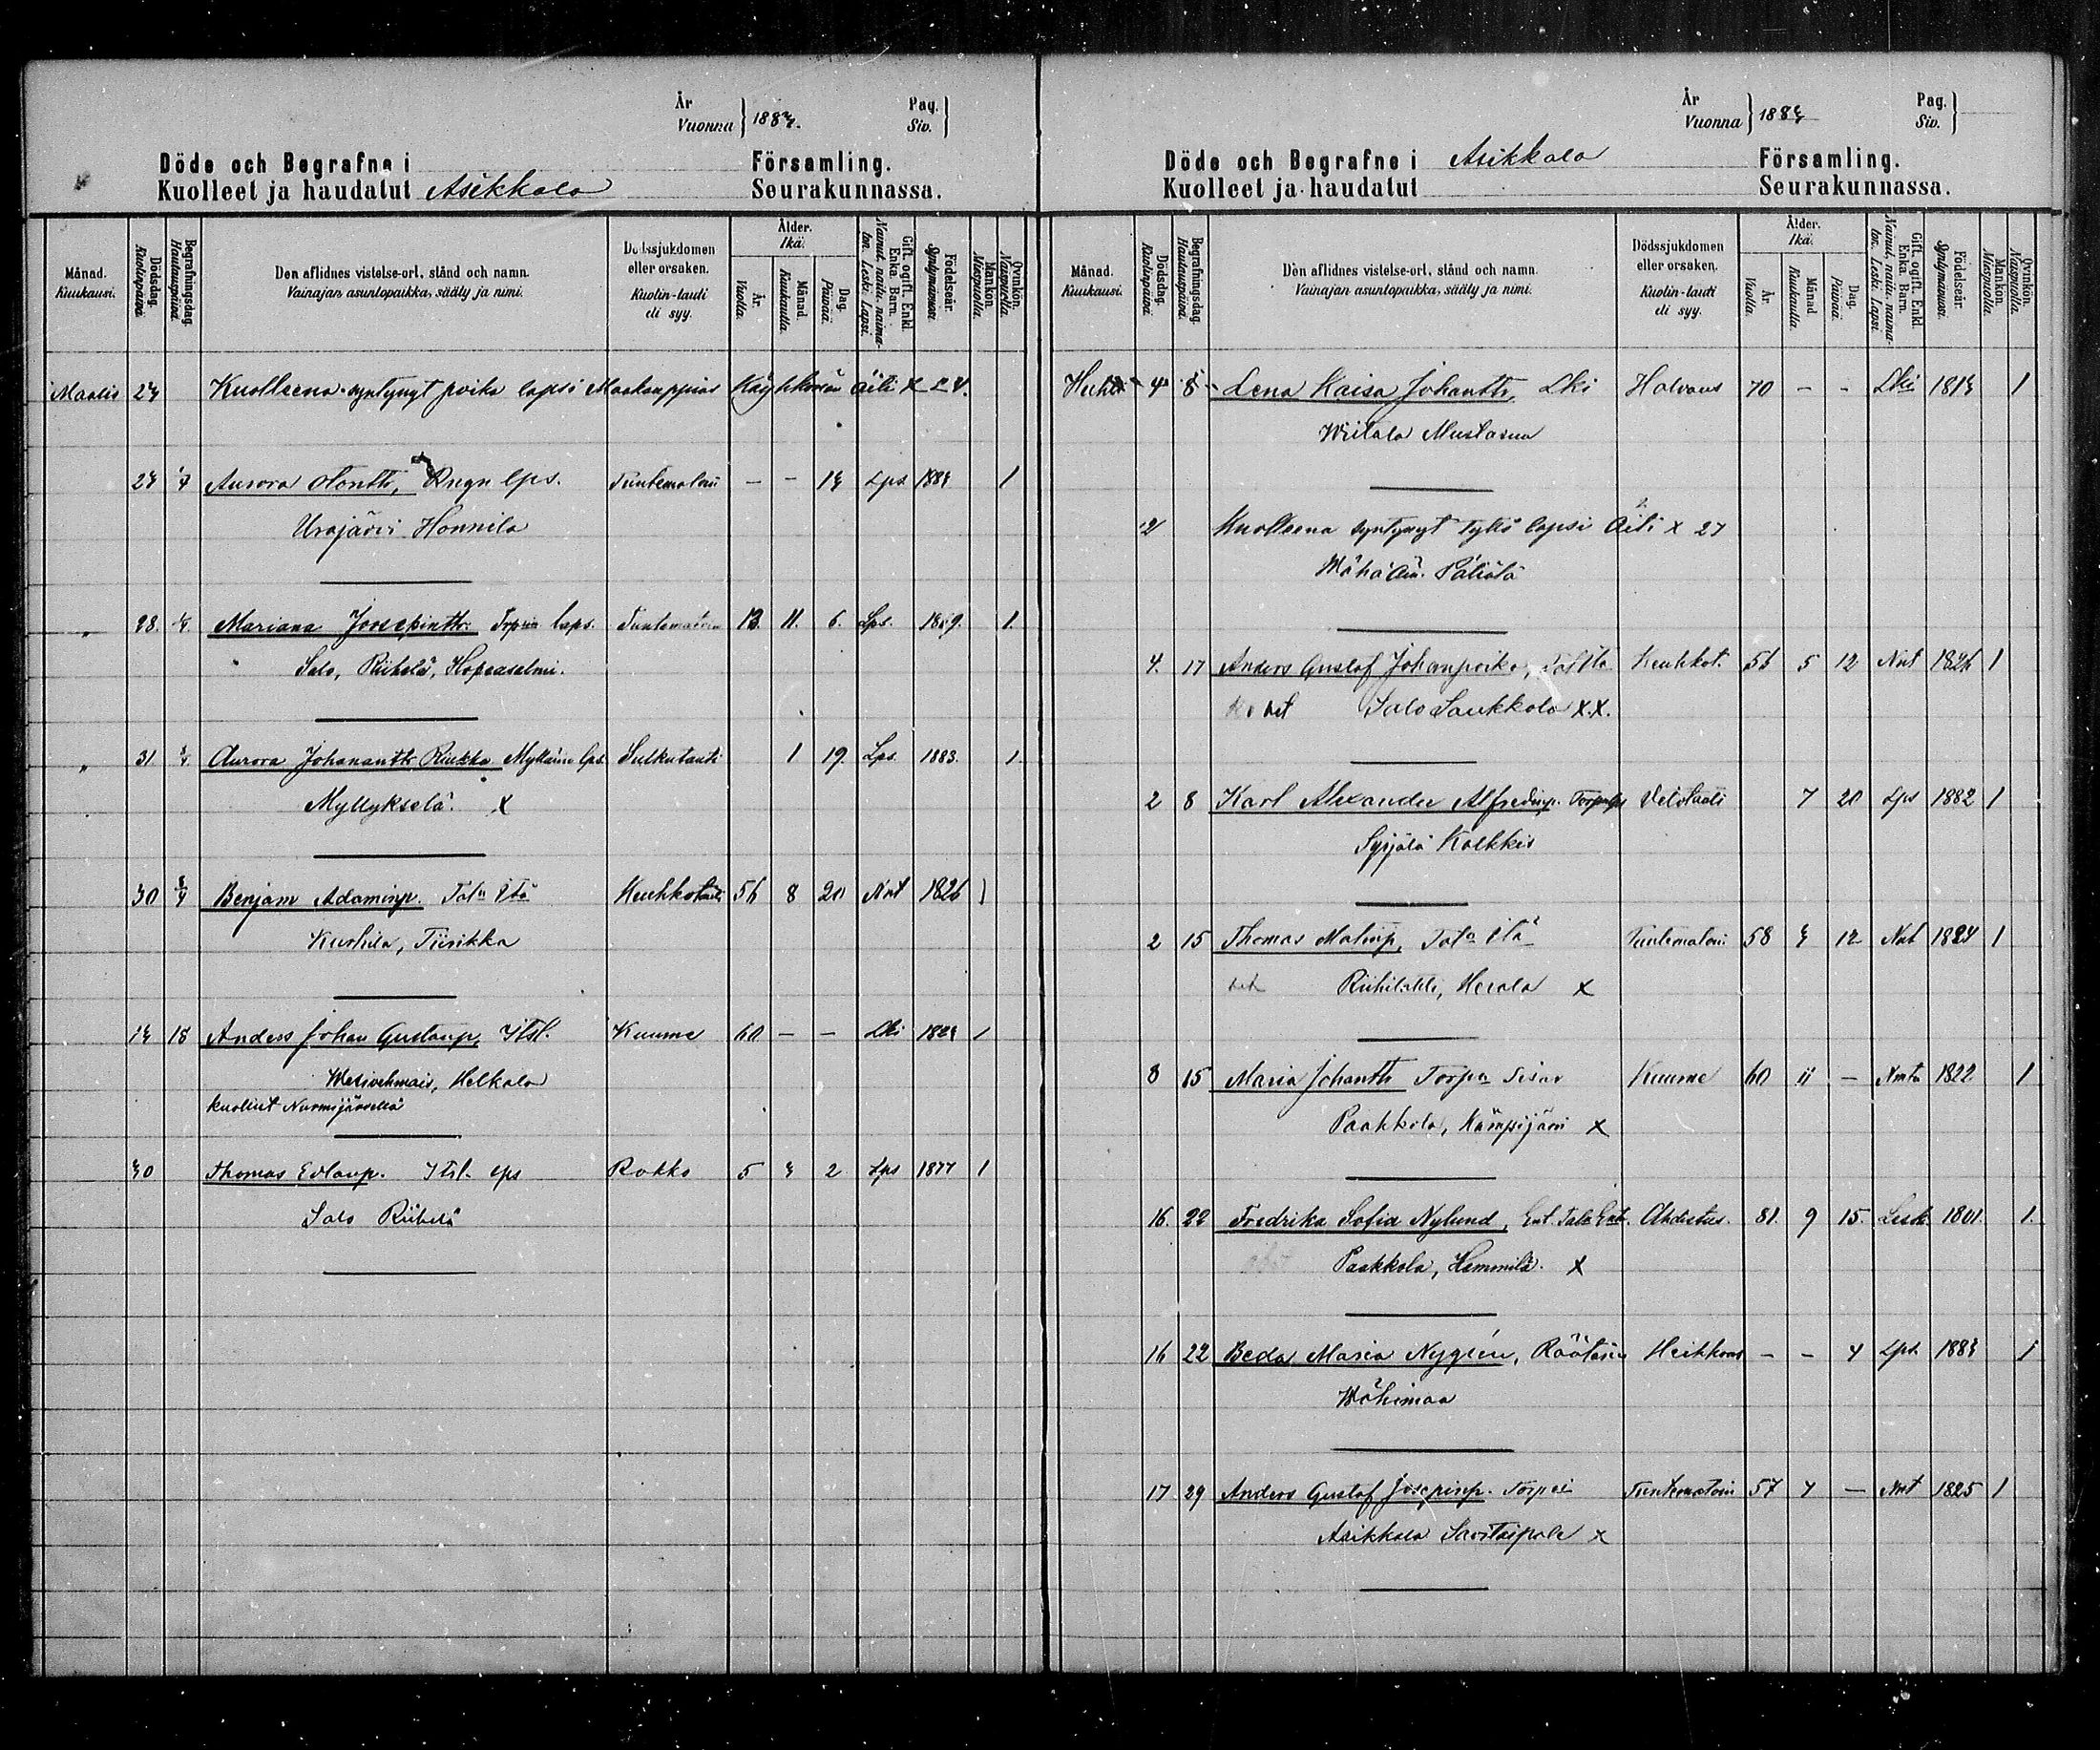 År
Vuonna } 1883. Pag.
Siv.
Döde och Begrafne i Församling.
Kuolleet ja haudatut Asikkala Seurakunnassa.
Månad. Kuukausi.
Dödsdag. Kuolinpäivä.
Begrafningsdag. Hautauspäivä.
Den aflidnes vistelse-ort, stånd och namn.
Vainajan asuntopaikka, sääty ja nimi.
Dödssjukdomen
eller orsaken.
Kuolin-tauti
eli syy.
Ålder.
Ikä.
År. Vuotta.
Månad. Kuukautta.
Dag. Päivää.
Gift, ogift. Enkl. Enka. Barn.
Nainut, naitu, naimaton. Leski. Lapsi.
Födelseår. Syntymävuosi.
Mankön. Miespuolia.
Qvinkön. Naispuolia.
Maalis 23 Kuolleena syntynyt poika lapsi Maakauppias Käyhkösen äiti x 24.
23 Aurora Ottontr, lps. Tuntematoin – – 13 Lps 1883 1
Urajärvi Honnila
" 28. Mariana Joosepintr. Torpin laps. Tuntematoin 13. 11. 6. Lps. 1869. 1.
Salo, Riihelä, Hopeasalmi.
" 31 Aurora Johanantr. Myllärin lps. Sulkutauti 1 19. Lps. 1883. 1.
Myllykselä. x
30 8/4 Benjam Adaminp. Tal:n Itä Keuhkotauti 56 8 20 Nnt 1826 1
Kurhila, Tiirikka
13 18 Anders Johan Gustavp. Itsl. Kuume 60 – – Lki 1823 1
Wesivehmais, Helkala
kuollut Nurmijärvellä
30 Thomas Edvarp. Itsl. lps Rokko 5 3 2 Lps 1877 1
Salo Riihelä
År
Vuonna } 1883 Pag.
Siv.
Döde och Begrafne i Asikkala Församling.
Kuolleet ja haudatut Seurakunnassa.
Månad. Kuukausi.
Dödsdag. Kuolinpäivä.
Begrafningsdag. Hautauspäivä.
Den aflidnes vistelse-ort, stånd och namn.
Vainajan asuntopaikka, sääty ja nimi.
Dödssjukdomen
eller orsaken.
Kuolin-tauti
eli syy.
Ålder.
Ikä.
År. Vuotta.
Månad. Kuukautta.
Dag. Päivää.
Gift, ogift. Enkl. Enka. Barn.
Nainut, naitu, naimaton. Leski. Lapsi.
Födelseår. Syntymävuosi.
Mankön. Miespuolia.
Qvinkön. Naispuolia.
Huht. 4 8 Lena Kaisa Johantr, Lki Halvaus 70 – – Lki 1813 1
Wiitala Mustasuu
2 Kuolleena syntynyt tyttö lapsi Äiti x 27
Wähä Äin. Pätiälä
4. 17 Anders Gustaf Johanpoika, Keuhkot. 56 5 12 Nnt 1826 1
Salo Saukkola x.x.
2 8 Karl Alexander Alfredinp. Torpn lps Vetotauti 7 20 Lps 1882 1
Syrjälä Kalkkis
2 15 Thomas Matinp, Tal:n Itä Tuntematoin 58 3 12 Nnt 1824 1
Riihilahti, Herala x
8 15 Maria Johantr Torp:n sisar Kuume 60 11 – Nmtn 1822 1
Paakkola, Kämpijärvi x
16. 22 Fredrika Sofia Nylund, Ent. Tal:n Emt. Ahdistus. 81. 9 15. Lesk. 1801. 1.
Paakkola, Hemmilä. x
16 22 Beda Maria Nygrén, Räätälin Heikkous – – 4 Lps. 1883 1
Wähimaa
17 29 Anders Gustaf Josepinp. Torpar Tuntematoin 57 4 – Nnt 1825 1
Asikkala Savitaipale x